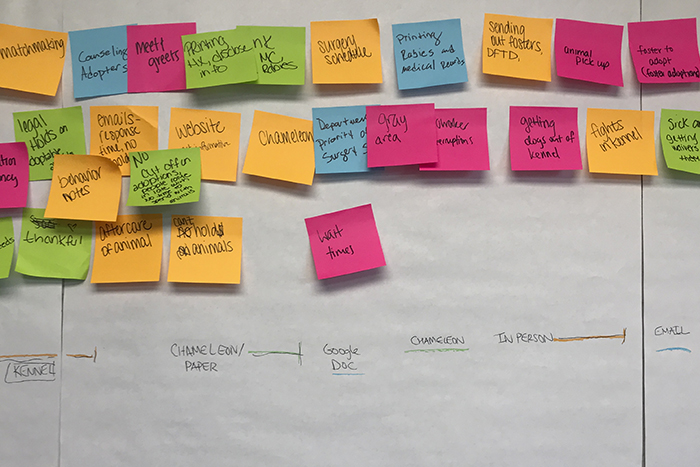 matchmaking
Counseling
Adopters
Meet
greets
Printing
Hx, disclose
info
MC
Rabies
surgery
schedule
Printing
Rabies and
medical Records
Sending
out fosters,
DFTD,
animal
pick up
foster to
adopt
(foster adoption)
legal
Holds on
adoptable
emails-
response
time, no
website
Chameleon
Department
Priority of
Surgery
gray
area
getting
dogs out of
kennel
fights
in kennel
Sick
getting
behavior
notes
No
cut off on
adoptions,
people
thankful
aftercare
of animal
cant
hold
animals
wait
times
KENNEL
CHAMELEON/
PAPER
Google
DOC
CHAMELEON
IN PERSON
EMAIL